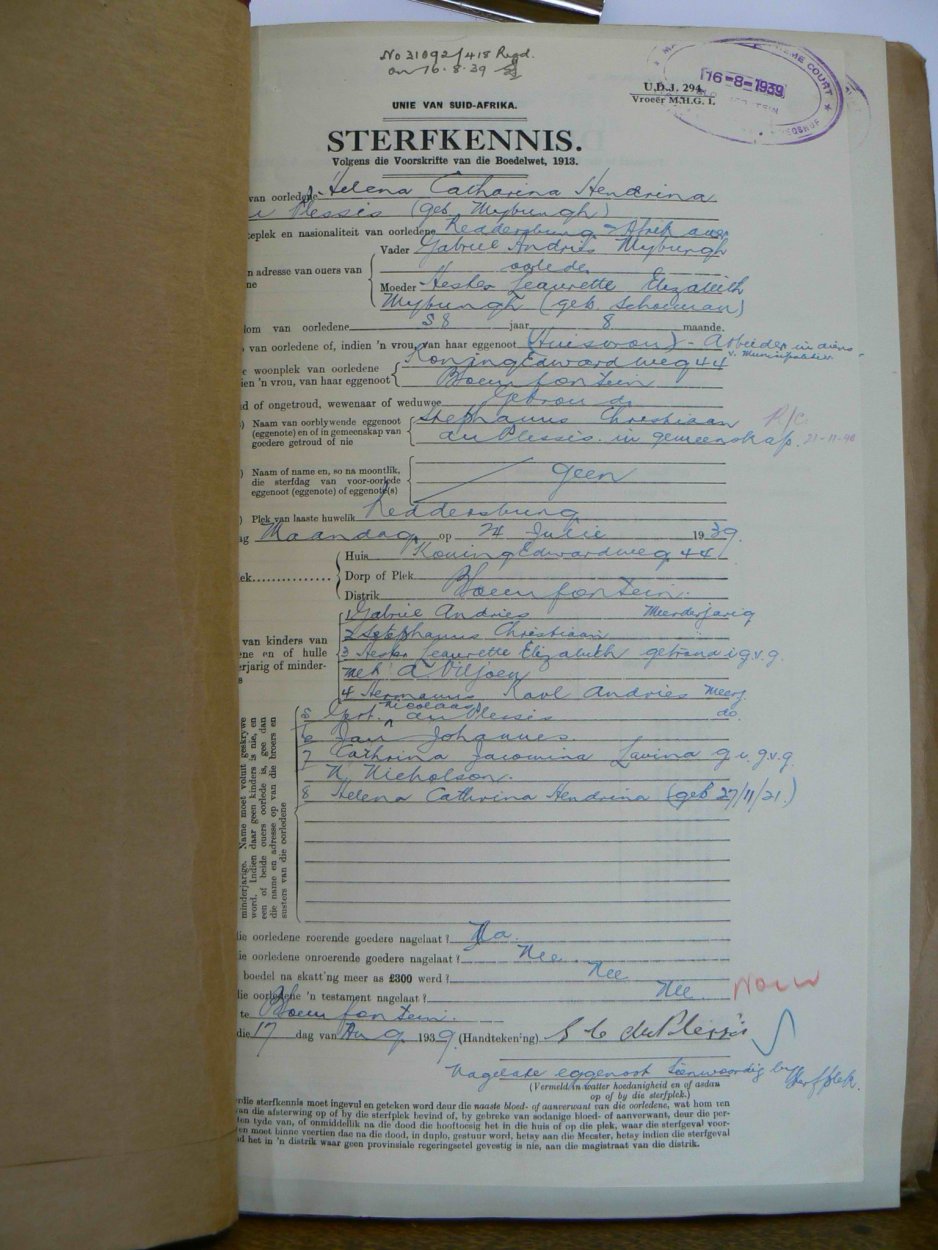 No 31092/418 Regd.
on 16-8-39
SUPREME COURT
16-8-1939
U.D.J. 294.
Vroeër M.H.G. 1.
UNIE VAN SUID-AFRIKA.
STERFKENNIS.
Volgens die Voorskrifte van die Boedelwet, 1913.
van oorledene Helena Catharina Hendrina
Plessis (geb Myburgh)
teplek en nasionaliteit van oorledene Reddersburg - Afrikaner
Vader Gabriel Andries Myburgh
n adresse van ouers van
ne
oorlede
Moeder Hester Leaurette Elizabeith
Myburgh (geb. Schoeman)
dom van oorledene 58 jaar 8 maande.
van oorledene of, indien 'n vrou, van haar eggenoot (Huisvrou) - Arbeider in diens
v. Munisipaliteit
e woonplek van oorledene
ien 'n vrou, van haar eggenoot
Koning Edward weg 44
Bloemfontein
d of ongetroud, wewenaar of weduwee Getroud
) Naam van oorblywende eggenoot
(eggenote) en of in gemeenskap van
goedere getroud of nie
Stephanus Christiaan
du Plessis. in gemeenskap. 21-11-40
) Naam of name en, so na moontlik,
die sterfdag van voor-oorlede
eggenoot (eggenote) of eggenote(s)
Geen
) Plek van laaste huwelik Reddersburg
ag Maandag op 24 Julie 1939.
Huis Koning Edwardweg 44
ek.............. Dorp of Plek Bloemfontein.
Distrik
van kinders van
ene en of hulle
erjarig of minder-
s
1 Gabriel Andries Meerderjarig
2 Stephanus Christiaan
3 Hester Leaurette Elizabeith getroud i g.v.g.
met A. Viljoen
4 Hermanus Karl Andries Meerj.
5 Gert Nicolaas du Plessis do.
6 Jan Johannes.
7 Cathrina Jacomina Lavina g. i. g.v.g.
N. Nicholson.
8 Helena Cathrina Hendrina (geb 27/11/21.)
minderjarige. Name moet voluit geskrywe
word. Indien daar geen kinders is nie, en
een of beide ouers oorlede is, gee dan
die name en adresse op van die broers en
susters van die oorledene
die oorledene roerende goedere nagelaat? Ja.
ie oorledene onroerende goedere nagelaat? Nee.
boedel na skatt'ng meer as £300 werd? Nee
die oorledene 'n testament nagelaat? Nee.
te Bloemfontein.
die 17 dag van Aug. 1939. (Handtekening) S C du Plessis
Nagelate eggenoot teenwoordig by sterfplek.
(Vermeld in watter hoedanigheid en of asdan
op of by die sterfplek.)
erdie sterfkennis moet ingevul en geteken word deur die naaste bloed- of aanverwant van die oorledene, wat hom ten
van die afsterwing op of by die sterfplek bevind of, by gebreke van sodanige bloed- of aanverwant, deur die per-
ten tyde van, of onmiddellik na die dood die hooftoesig het in die huis of op die plek, waar die sterfgeval voor-
en moet binne voertien dae na die dood, in duplo, gestuur word, hetsy aan die Meester, hetsy indien die sterfgeval
d het in 'n distrik waar geen provinsiale regeringsetel gevestig is nie, aan die magistraat van die distrik.